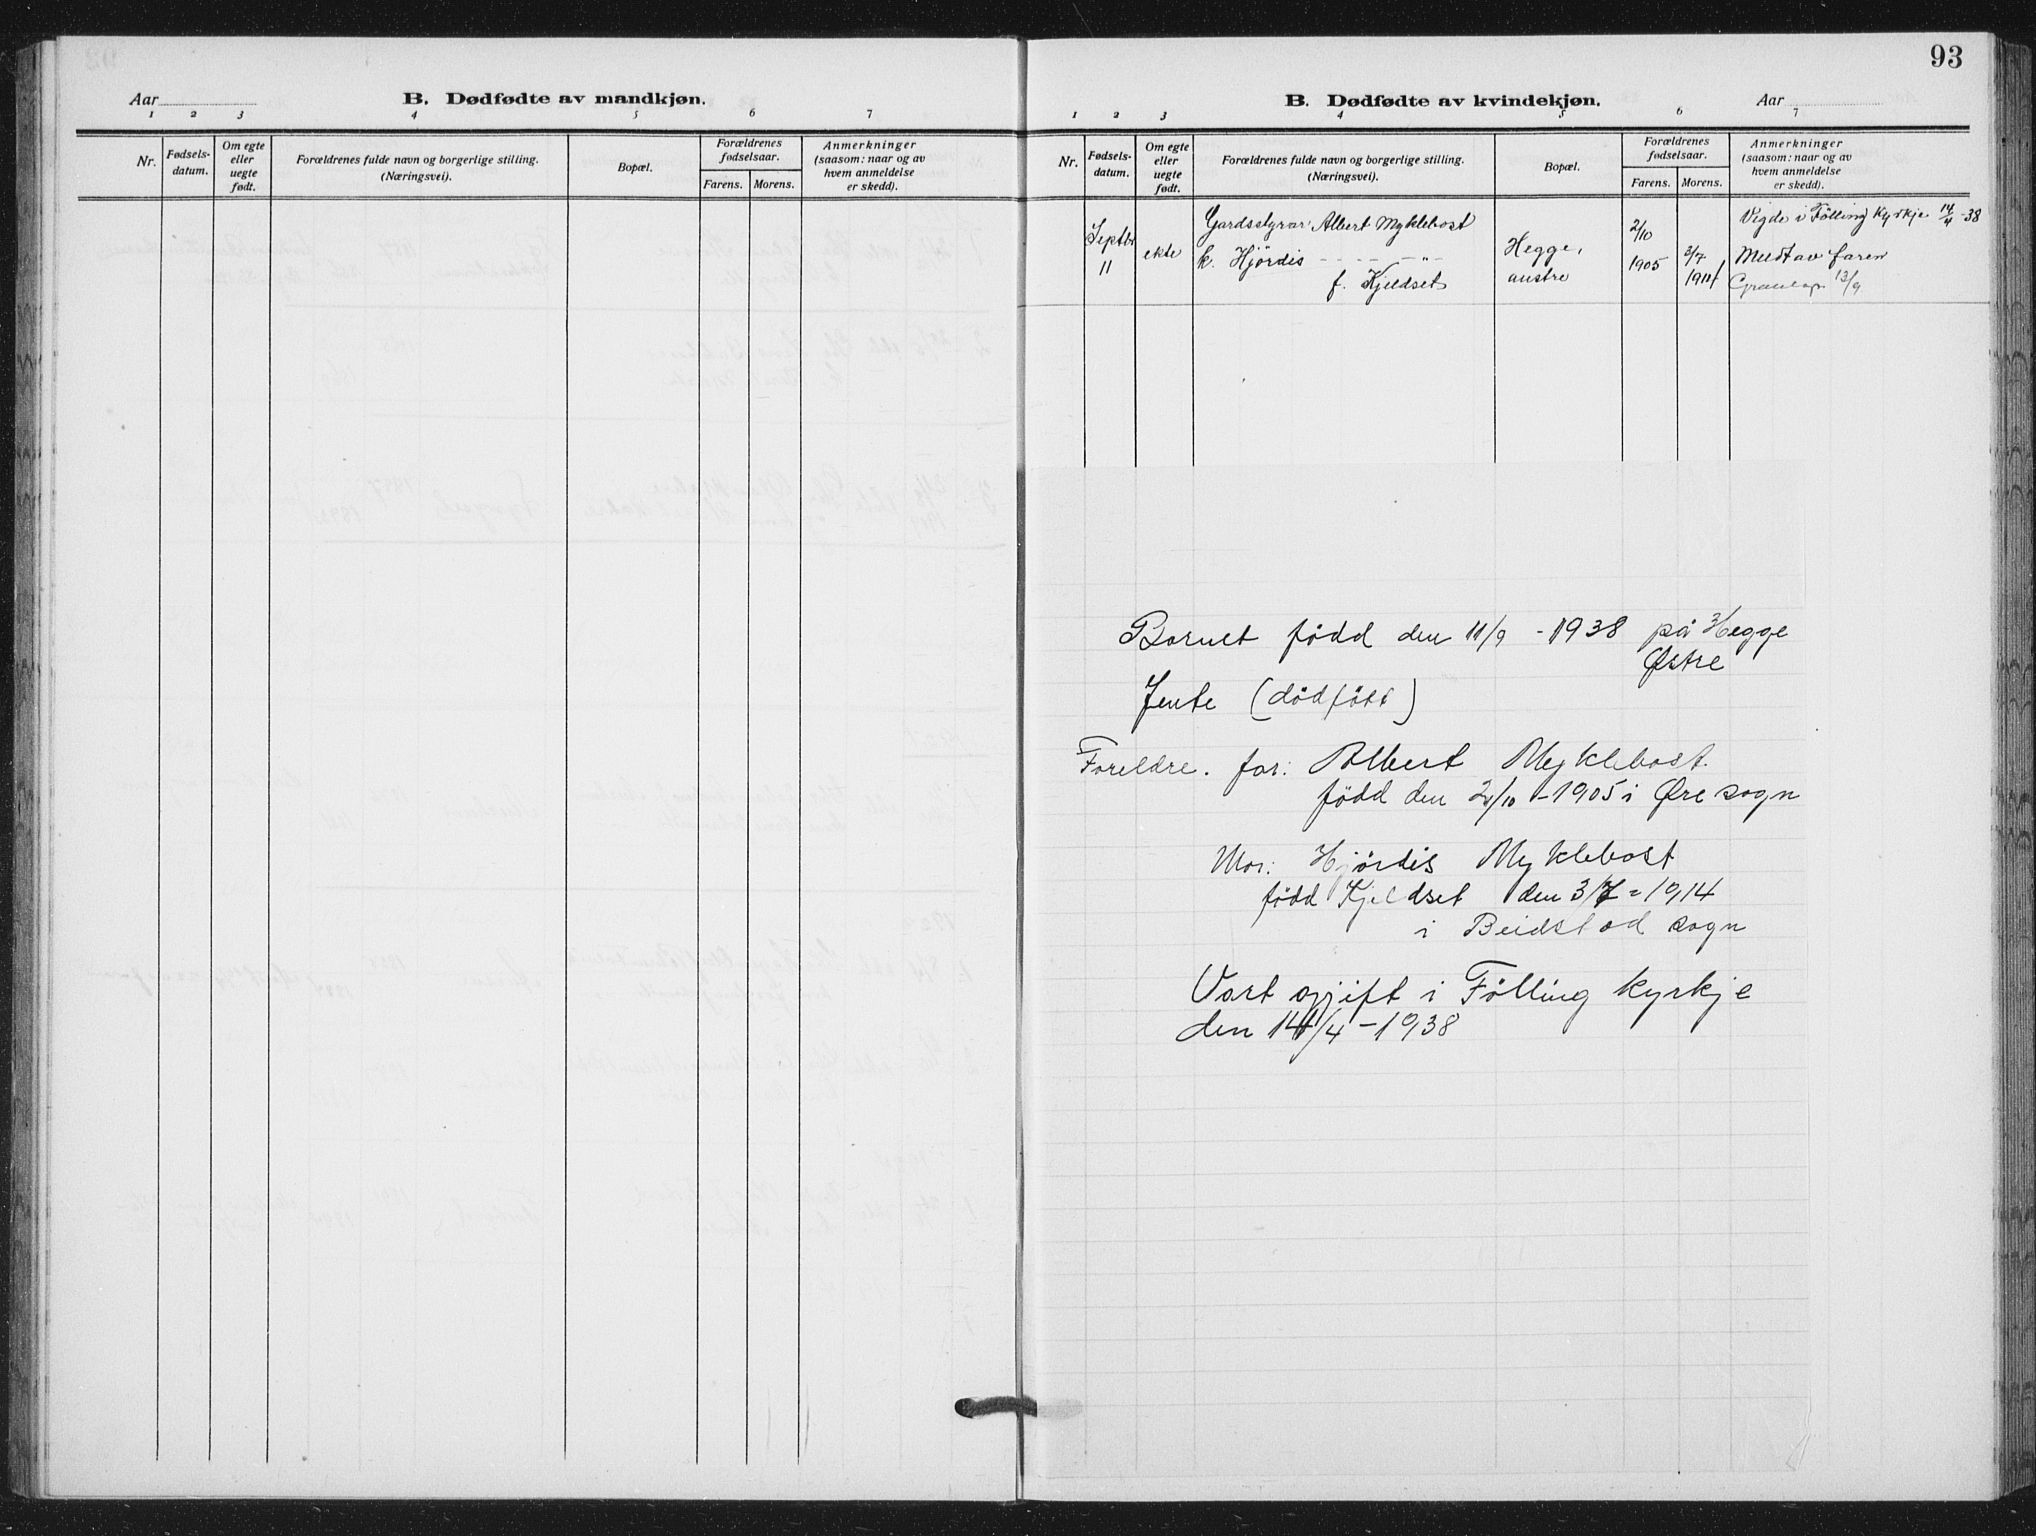 Aar
B. Dødfødte av mandkjøn.
1 2 3 4 5 6 7
Nr.
Fødsels-
datum.
Om egte
eller
uegte
født.
Forældrenes fulde navn og borgerlige stilling.
(Næringsvei).
Bopæl.
Forældrenes
fødselsaar.
Farens. Morens.
Anmerkninger
(saasom: naar og av
hvem anmeldelse
er skedd).
93
B. Dødfødte av kvindekjøn.
Aar
1 2 3 4 5 6 7
Nr.
Fødsels-
datum.
Om egte
eller
uegte
født.
Forældrenes fulde navn og borgerlige stilling.
(Næringsvei).
Bopæl.
Forældrenes
fødselsaar.
Farens. Morens.
Anmerkninger
(saasom: naar og av
hvem anmeldelse
er skedd).
Septbr
11
ekte
Gardsstyrar Albert Myklebost
k. Hjördis - - - - " -
f. Kjeldset
Hegge,
austre
2/10
1905
3/7
1914
Vigde i Fölling Kyrkje 14/4 -38
Meldt av faren
13/9
Bornet född den 11/9 - 1938 på Hegge
Østre
Jente (dödfött)
Foreldre. far: Albert Myklebost.
född den 2/10 - 1905 i Øre sogn
Mor: Hjørdis Myklebost
född Kjeldset den 3/7 = 1914
i Beidstad sogn
Vart gjift i Fölling kyrkje
den 14/4 - 1938